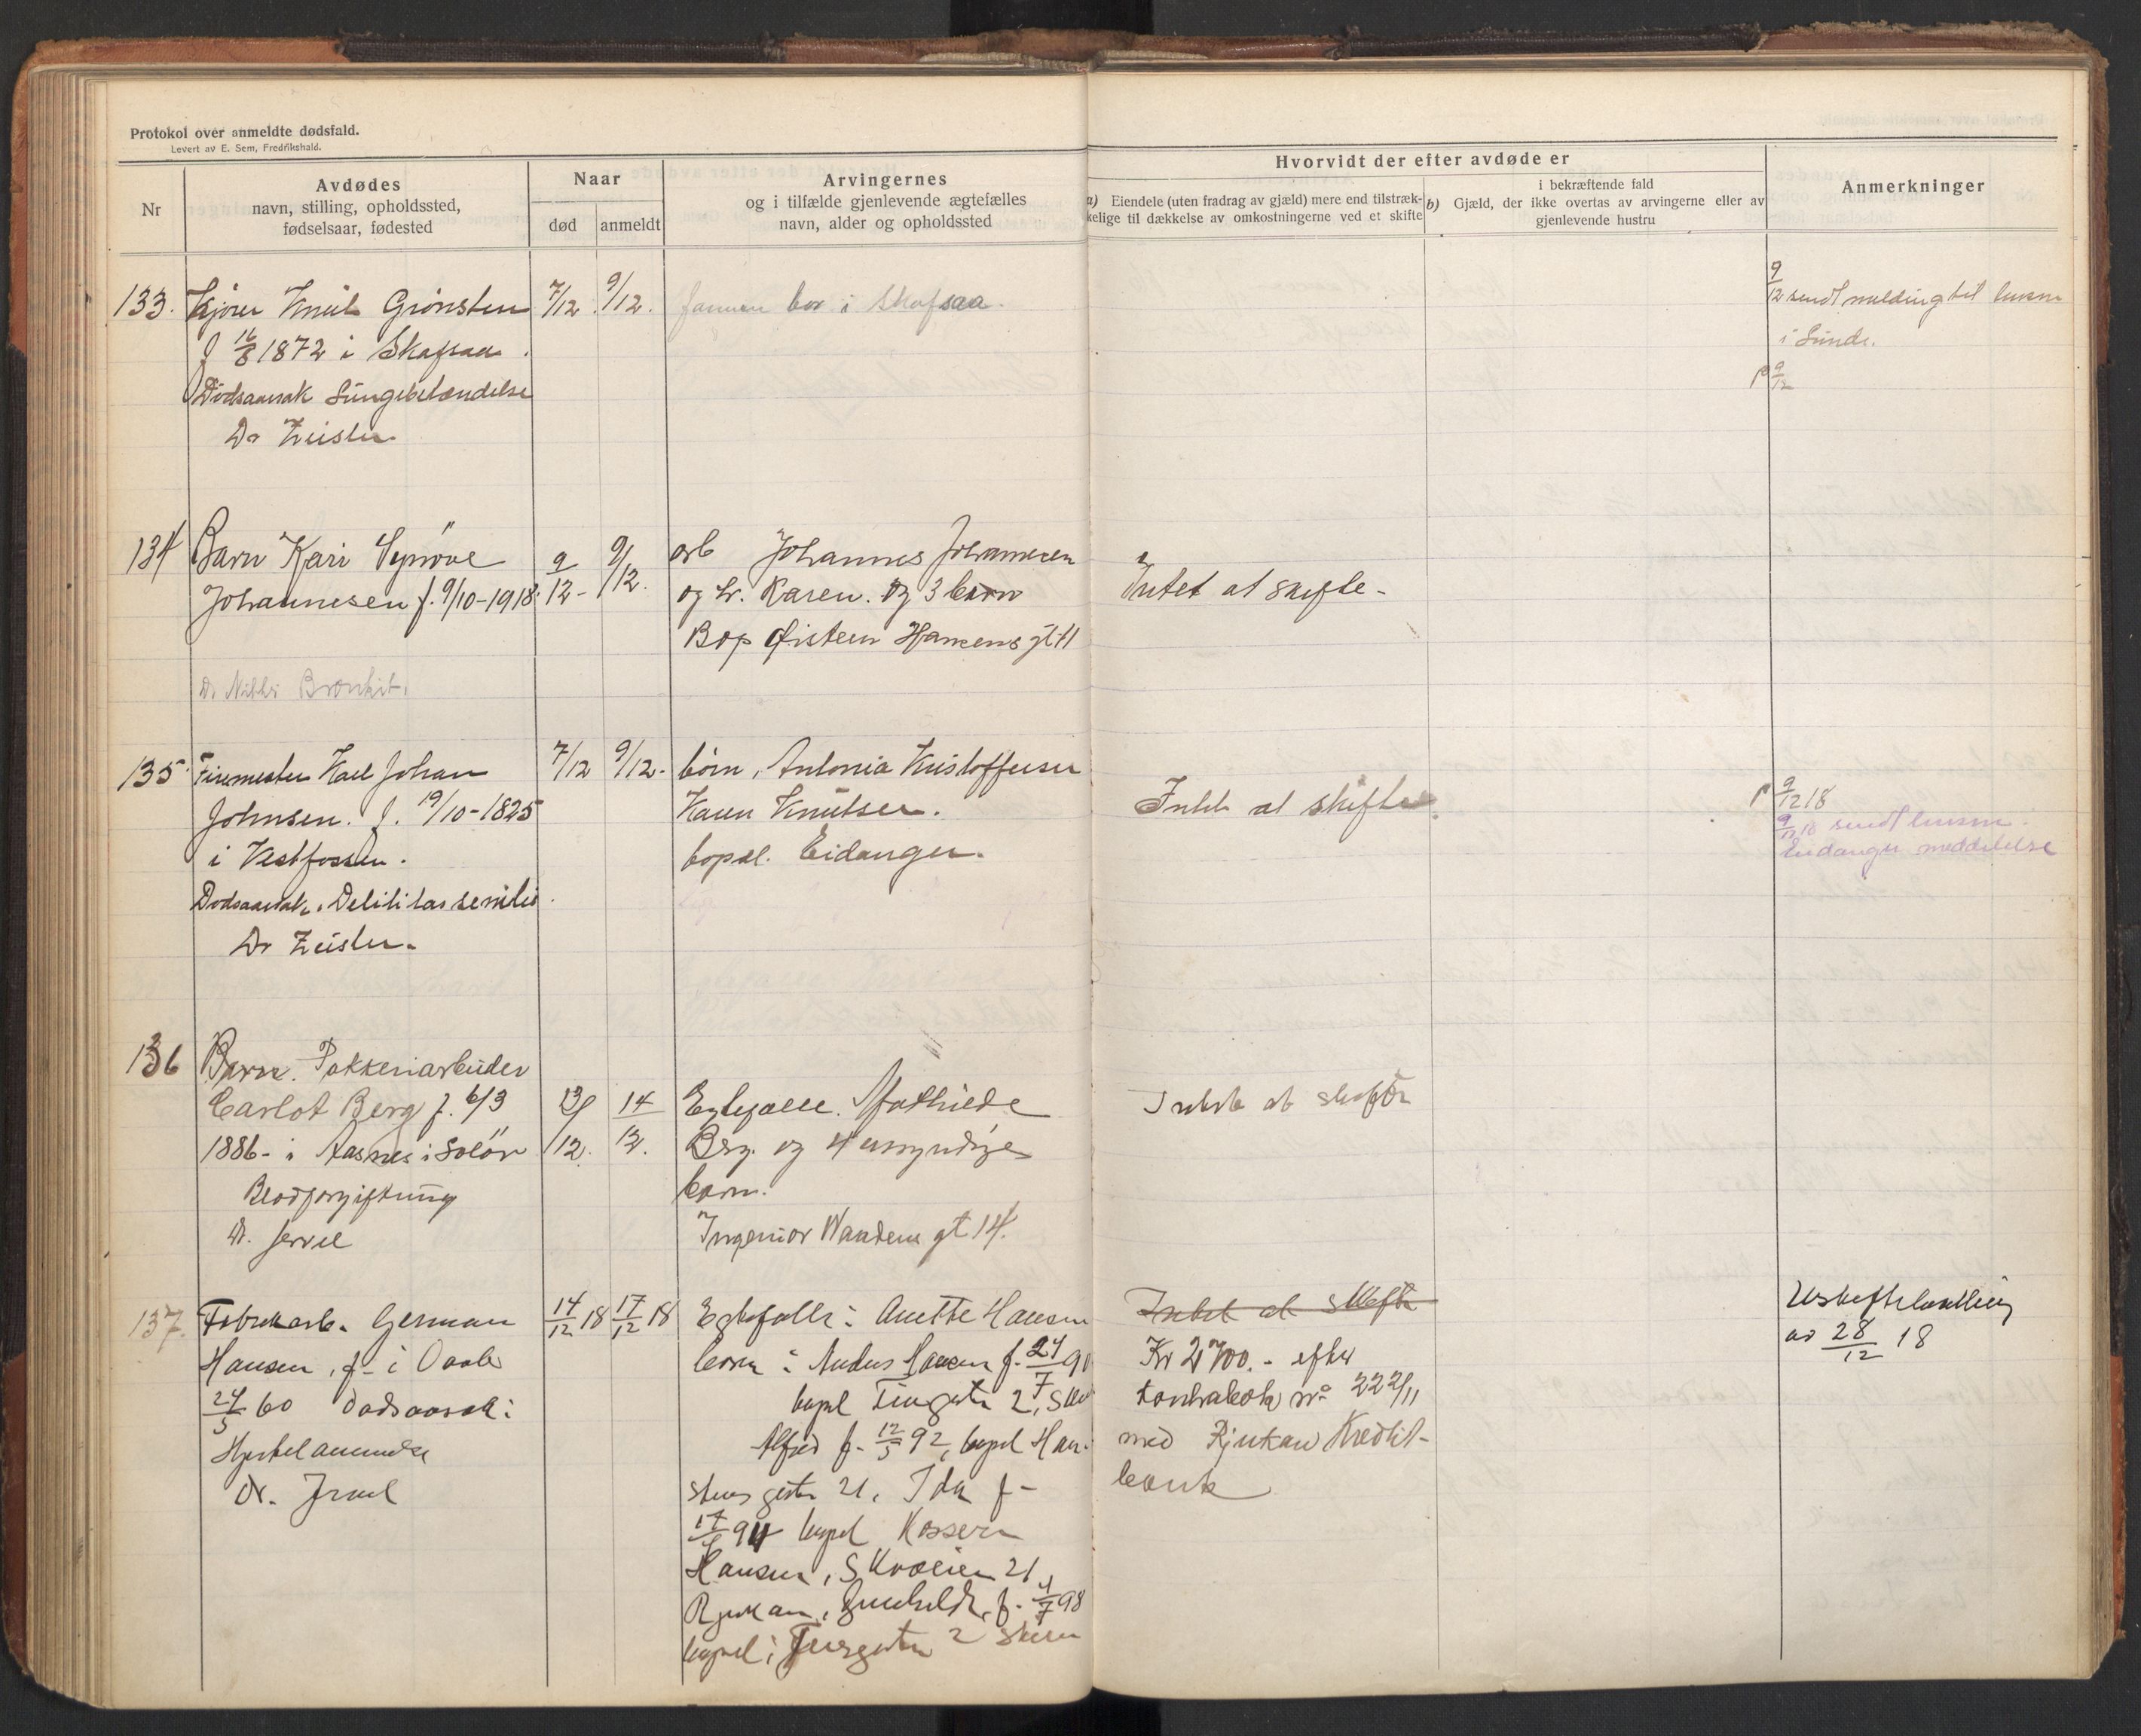 Protokol over anmeldte dødsfald.
Levert av E. Sem, Fredrikshald.
Nr
Avdødes
navn, stilling, opholdssted,
fødselsaar, fødested
Naar
død
anmeldt
Arvingernes
og i tilfælde gjenlevende ægtefælles
navn, alder og opholdssted
Hvorvidt der efter avdøde er
a) Eiendele (uten fradrag av gjæld) mere end tilstræk-
kelige til dækkelse av omkostningerne ved et skifte
i bekræftende fald
b) Gjæld, der ikke overtas av arvingerne eller av
gjenlevende hustru
Anmerkninger
133. Kjører Knut Grønsten 7/12 9/12. bor i Skafsaa.
f 16/8 1872 i Skafsaa.
Dødsaarsak Lungebetændelse
Dr Zeisler
9/12 sendt melding til lensm
i
9/12
134 Barn Kari 9/12- 9/12. arb Johannes Johannesen
Johannesen f. 9/10-1918. og h. Karen. og 3 barn
Bop Øisteen Hansens gt 11
Dr. Bronkit.
Intet at skifte-
135 Karl Johan 7/12 9/12- børn, Antonia Kristoffersen
Johnsen. f. 19/10-1825 Karen Knutsen.
i Vestfossen. bopæl. Eidanger.
Dødsaarsak. Debilitas senilis.
Dr Zeisler.
Intet at skifte.
9/12 18
9/12 18 sendt lensm.
Eidanger meddelelse
136 Barn. Pakkeriarbeider
Carlot Berg f. 6/3 13/12. 14/12. Egtefælle. Mathilde
1886- i Aasnes i Solør Berg. og 4 umyndige
Blodforgiftning barn.
Dr. Ingeniør Naadens gt 14.
Intet at skifte
137. Fabrikarb. German 14/12 18 17/12 18 Egtefælle: Anette Hansen
Hansen, f- i barn: Hansen f. 24/7 90
24/5 60 Dødsaarsak: bopæl Tingata 2,
Alfred f- 12/5 92, bopæl Han-
Dr. stens gata 21. Ida f-
94 bopæl
Hansen, 21
Rjukan, Gunhild, f- 4/7 98
bopæl i 2 Skien
Intet at skifte
Kr 2700.- efter
kontrabok nr 222/11
med Rjukan Kredit-
bank
Uskiftebevilling
av 28/12 18